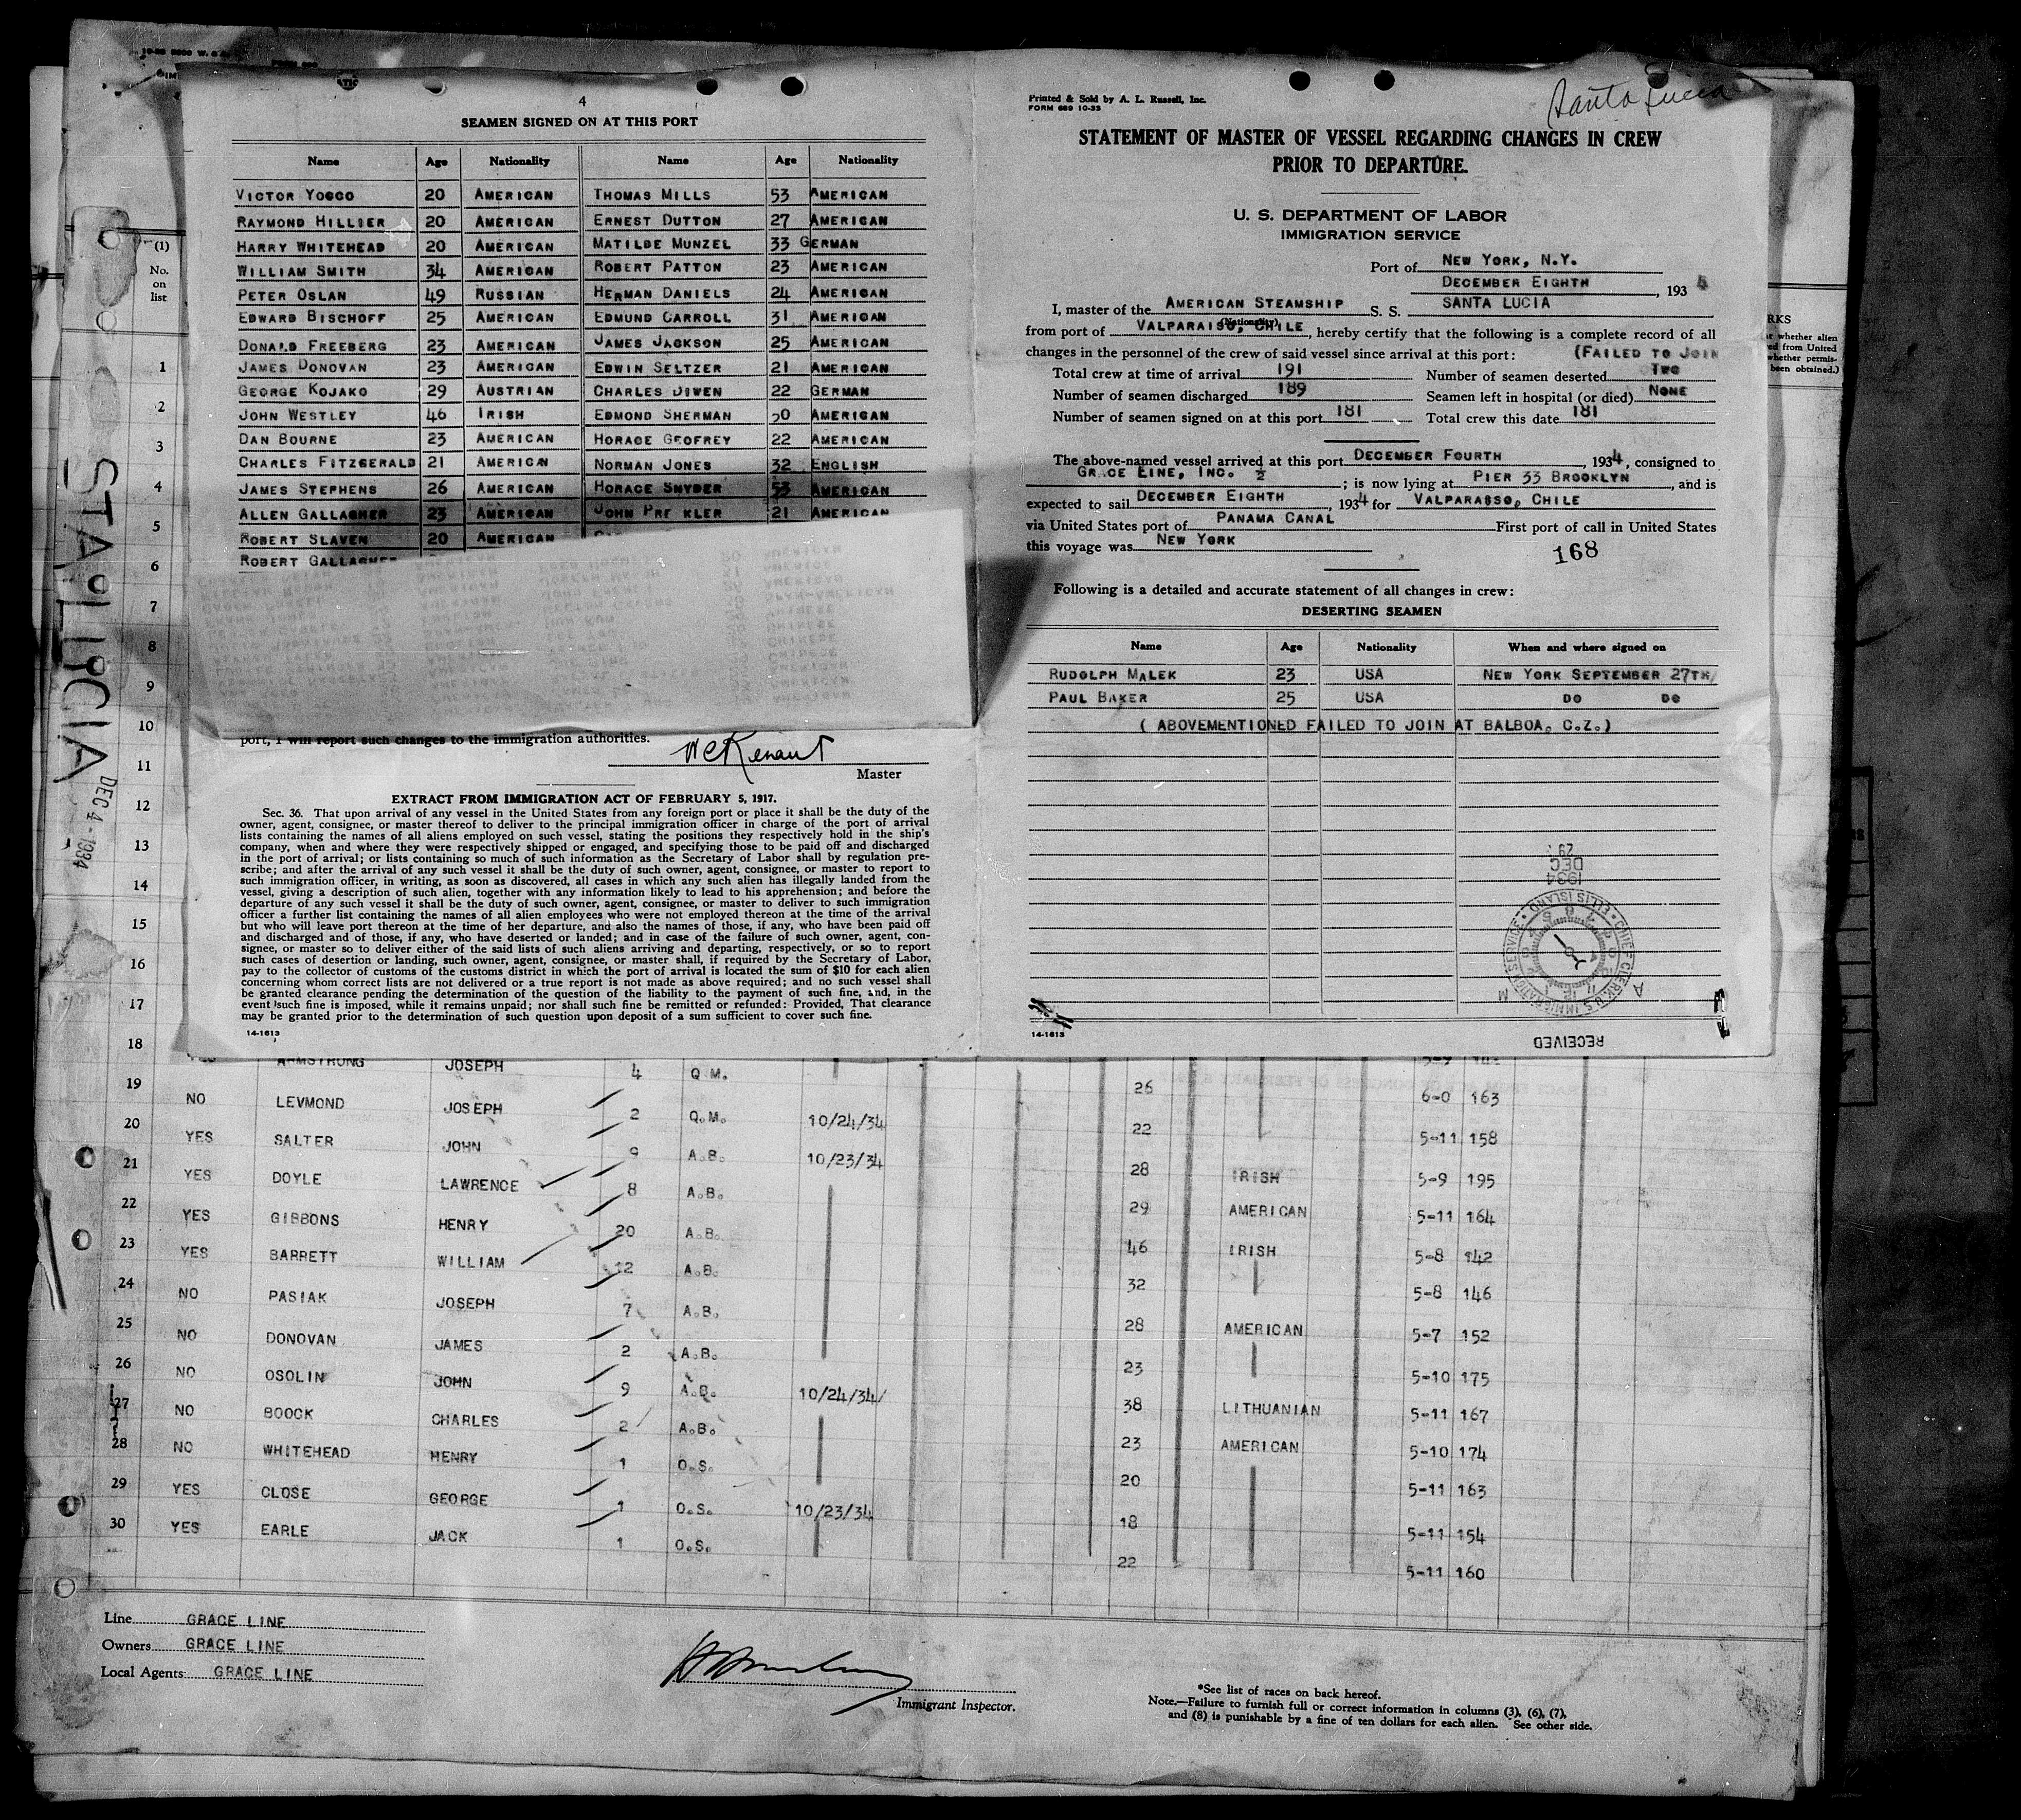 4
SEAMEN SIGNED ON AT THIS PORT
Name Age Nationality Name Age Nationality
VICTOR YOCCO 20 AMERICAN THOMAS MILLS 53 AMERICAN
RAYMOND HILLIER 20 AMERICAN ERNEST DUTTON 27 AMERICAN
HARRY WHITEHEAD 20 AMERICAN MATILDE MUNZEL 33 GERMAN
WILLIAM SMITH 34 AMERICAN ROBERT PATTON 23 AMERICAN
PETER OSLAN 49 RUSSIAN HERMAN DANIELS 24 AMERICAN
EDWARD BISCHOFF 25 AMERICAN EDMUND CARROLL 31 AMERICAN
DONALD FREEBERG 23 AMERICAN JAMES JACKSON 25 AMERICAN
JAMES DONOVAN 23 AMERICAN EDWIN SELTZER 21 AMERICAN
GEORGE KOJAKO 29 AUSTRIAN CHARLES DIWEN 22 GERMAN
JOHN WESTLEY 46 IRISH EDMOND SHERMAN 50 AMERICAN
DAN BOURNE 23 AMERICAN HORACE GEOFREY 22 AMERICAN
CHARLES FITZGERALD 21 AMERICAN NORMAN JONES 32 ENGLISH
JAMES STEPHENS 26 AMERICAN HORACE SNYDER 53 AMERICAN
ALLEN GALLAGHER 23 AMERICAN JOHN 21 AMERICAN
ROBERT SLAVEN 20 AMERICAN
ROBERT GALLAGHER
port, I will report such changes to the immigration authorities.
Master
EXTRACT FROM IMMIGRATION ACT OF FEBRUARY 5, 1917.
Sec. 36. That upon arrival of any vessel in the United States from any foreign port or place it shall be the duty of the
owner, agent, consignee, or master thereof to deliver to the principal immigration officer in charge of the port of arrival
lists containing the names of all aliens employed on such vessel, stating the positions they respectively hold in the ship's
company, when and where they were respectively shipped or engaged, and specifying those to be paid off and discharged
in the port of arrival; or lists containing so much of such information as the Secretary of Labor shall by regulation pre-
scribe; and after the arrival of any such vessel it shall be the duty of such owner, agent, consignee, or master to report to
such immigration officer, in writing, as soon as discovered, all cases in which any such alien has illegally landed from the
vessel, giving a description of such alien, together with any information likely to lead to his apprehension; and before the
departure of any such vessel it shall be the duty of such owner, agent, consignee, or master to deliver to such immigration
officer a further list containing the names of all alien employees who were not employed thereon at the time of the arrival
but who will leave port thereon at the time of her departure, and also the names of those, if any, who have been paid off
and discharged and of those, if any, who have deserted or landed; and in case of the failure of such owner, agent, con-
signee, or master so to deliver either of the said lists of such aliens arriving and departing, respectively, or so to report
such cases of desertion or landing, such owner, agent, consignee, or master shall, if required by the Secretary of Labor,
pay to the collector of customs of the customs district in which the port of arrival is located the sum of $10 for each alien
concerning whom correct lists are not delivered or a true report is not made as above required; and no such vessel shall
be granted clearance pending the determination of the question of the liability to the payment of such fine, and, in the
event such fine is imposed, while it remains unpaid; nor shall such fine be remitted or refunded: Provided, That clearance
may be granted prior to the determination of such question upon deposit of a sum sufficient to cover such fine.
14-1613
Printed & Sold by A. L. Russell, Inc.
FORM 689 10-33
Santa Lucia
STATEMENT OF MASTER OF VESSEL REGARDING CHANGES IN CREW
PRIOR TO DEPARTURE.
U. S. DEPARTMENT OF LABOR
IMMIGRATION SERVICE
Port of NEW YORK, N.Y.
DECEMBER EIGHTH, 193
I, master of the AMERICAN STEAMSHIP S. S. SANTA LUCIA
(Nationality)
from port of VALPARAISO, CHILE, hereby certify that the following is a complete record of all
changes in the personnel of the crew of said vessel since arrival at this port: (FAILED TO JOIN
Total crew at time of arrival 191 Number of seamen deserted TWO
Number of seamen discharged 189 Seamen left in hospital (or died) NONE
Number of seamen signed on at this port 181 Total crew this date 181
The above-named vessel arrived at this port DECEMBER FOURTH, 1934, consigned to
GRACE LINE, INC. ; is now lying at PIER 33 BROOKLYN, and is
expected to sail DECEMBER EIGHTH, 1934 for VALPARASSO, CHILE
via United States port of PANAMA CANAL First port of call in United States
this voyage was NEW YORK
168
Following is a detailed and accurate statement of all changes in crew:
DESERTING SEAMEN
Name Age Nationality When and where signed on
RUDOLPH MALEK 23 USA NEW YORK SEPTEMBER 27TH/
PAUL BAKER 25 USA DO DO
( ABOVEMENTIONED FAILED TO JOIN AT BALBOA, C.Z.)
29
DEC
1934
CHIEF CLERK U.S. IMMIGRATION SERVICE • ELLIS ISLAND •
A M
RECEIVED
14-1613
STA LUCIA
DEC 4 - 1934
(1)
No.
on
list
1
2
3
4
5
6
7
8
9
10
11
12
13
14
15
16
17
18 ARMSTRONG JOSEPH 4 Q M.
19 NO LEVMOND JOSEPH 2 Q.M. 10/24/34 26 6-0 163
20 YES SALTER JOHN 9 A.B. 10/23/34 22 5-11 158
21 YES DOYLE LAWRENCE 8 A.B. 28 IRISH 5-9 195
22 YES GIBBONS HENRY 20 A.B. 29 AMERICAN 5-11 164
23 YES BARRETT WILLIAM 12 A.B. 46 IRISH 5-8 142
24 NO PASIAK JOSEPH 7 A.B. 32 5-8 146
25 NO DONOVAN JAMES 2 A.B. 28 AMERICAN 5-7 152
26 NO OSOLIN JOHN 9 A.B. 10/24/34/ 23 5-10 175
27 NO BOOCK CHARLES 2 A.B. 38 LITHUANIAN 5-11 167
28 NO WHITEHEAD HENRY 1 O.S. 23 AMERICAN 5-10 174
29 YES CLOSE GEORGE 1 O.S. 10/23/34 20 5-11 163
30 YES EARLE JACK 1 O.S. 18 5-11 154
22 5-11 160
Line GRACE LINE
Owners GRACE LINE
Local Agents GRACE LINE
Immigrant Inspector.
*See list of races on back hereof.
Note.—Failure to furnish full or correct information in columns (3), (6), (7),
and (8) is punishable by a fine of ten dollars for each alien. See other side.